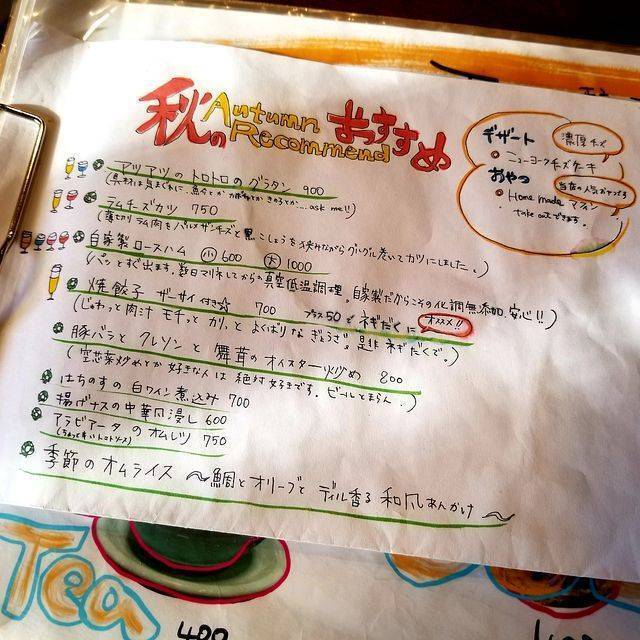 秋の Autumn Recommend おすすめ
アツアツのトロトロのグラタン 900
(具材は気まぐれに...魚介とか ...とかきのことか...ask me!!)
ラムチーズカツ 750
(薄切りラム肉をパルメザンチーズと黒こしょうを挟みながらグルグル巻いてカツにしました。)
自家製ロースハム 小 600 大 1000
(パッとすぐ出ます。数日マリネしてからの真空低温調理。自家製だからこその化調無添加、安心!!)
焼餃子 ザーサイ付き☆ 700 プラス50でネギだくに オススメ!!
(じゅわっと肉汁 モチっとカリっと よくばりなぎょうざ。是非ネギだくで。)
豚バラと クレソンと 舞茸の オイスター炒め 800
(空芯菜炒めとか好きな人は絶対好きです。ビールとまらん。)
はちのすの白ワイン煮込み 700
揚げナスの中華風浸し 600
アラビアータのオムレツ 750
(ちょっと辛いトマトソース)
季節のオムライス ～鯛とオリーブと ディル香る 和風あんかけ～
デザート
濃厚チーズ
ニューヨークチーズケーキ
おやつ
当店の人気おやつです
Home made マフィン
take outできます。
Tea
400